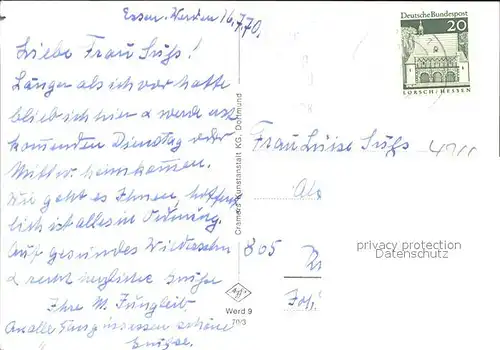 Essen-Werden 16.7.70.
Liebe Frau Süß!
Länger als ich vor hatte
blieb ich hier & werde erst
kommenden Dienstag oder
Mittw. heimkommen.
Wie geht es Ihnen, hoffent
lich ist alles in Ordnung.
Auf gesundes Wiedersehn
& recht herzliche Grüße
Ihre M. Jungleib.
An alle Hausinsassen schöne
Grüße.
Cramers Kunstanstalt KG, Dortmund
Werd 9
Deutsche Bundespost
20
LORSCH/HESSEN
Frau Luise Süß
805
privacy protection
Datenschutz